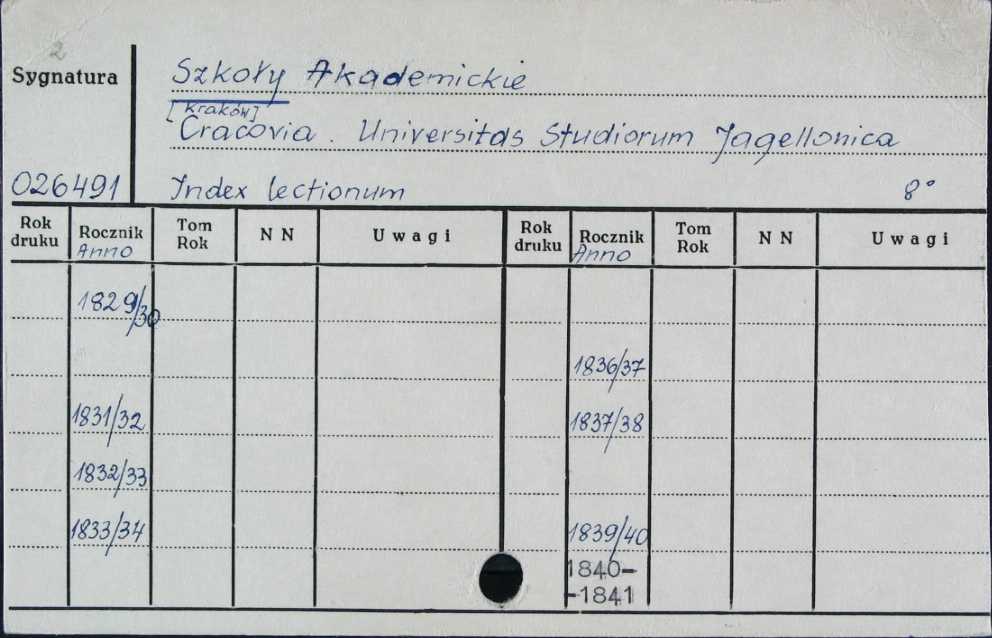 2
Sygnatura
Szkoły Akademickie
[Kraków]
Cracovia. Universitas Studiorum Jagellonica
026491
Index lectionum
8°
Rok druku
Rocznik
Anno
Tom Rok
N N
Uwagi
Rok druku
Rocznik
Anno
Tom Rok
N N
Uwagi
1829/30
1831/32
1832/33
1833/34
1836/37
1837/38
1839/40
1840-
-1841